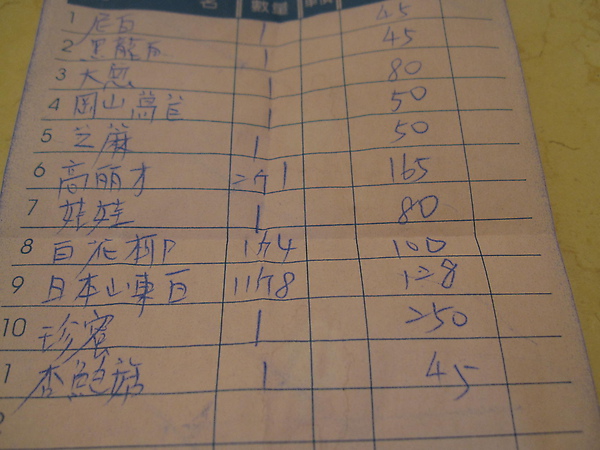 名 數量 單價
1 尼百 1 45
2 黑龍百 1 45
3 大忽 1 80
4 岡山萵苣 1 50
5 芝麻 1 50
6 高丽才 2个1 165
7 娃娃 1 80
8 百花柳 1个4 100
9 日本山東百 11个8 128
10 珍蜜 1 250
1 杏鮑菇 1 45